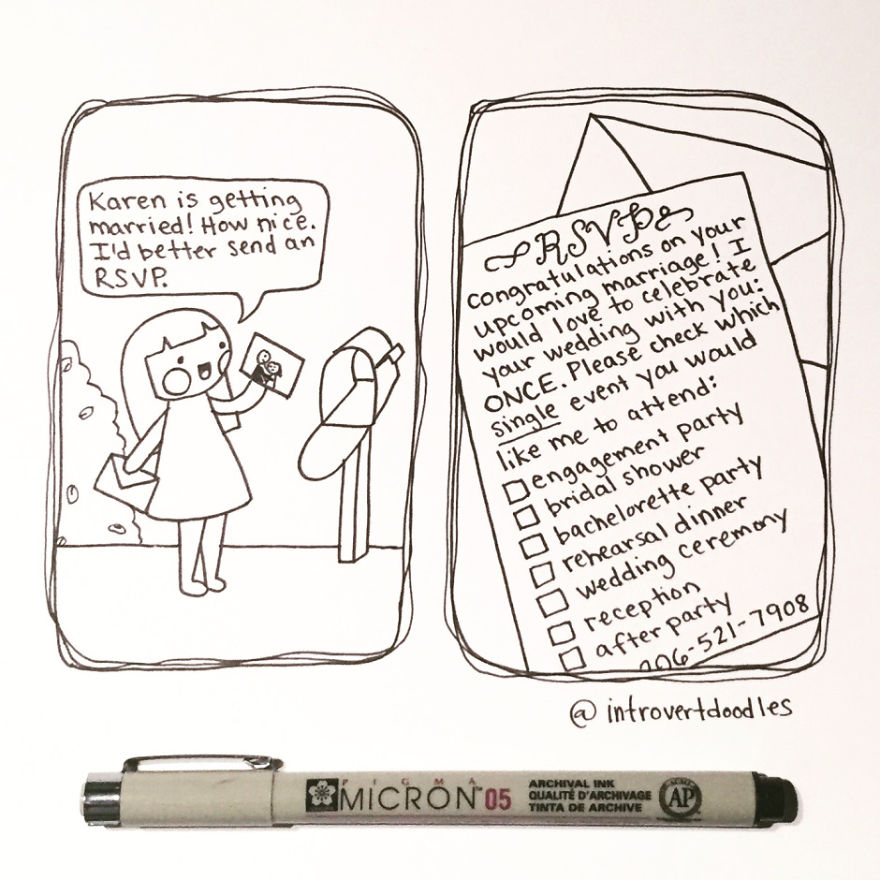 Karen is getting
married! How nice.
I'd better send an
RSVP.
RSVP
Congratulations on your
upcoming marriage! I
would love to celebrate
your wedding with you:
ONCE. Please check which
single event you would
like me to attend:
engagement party
bridal shower
bachelorette party
rehearsal dinner
wedding ceremony
reception
after party
206-521-7908
@introvertdoodles
PIGMA
MICRON™ 05
ARCHIVAL INK
QUALITÉ D'ARCHIVAGE
TINTA DE ARCHIVE
AP